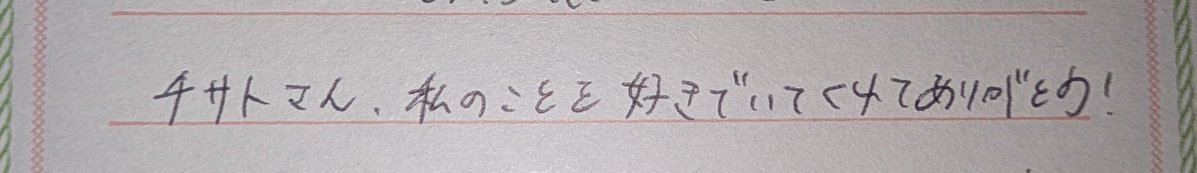 チサトさん、私のことを好きでいてくれてありがとう!